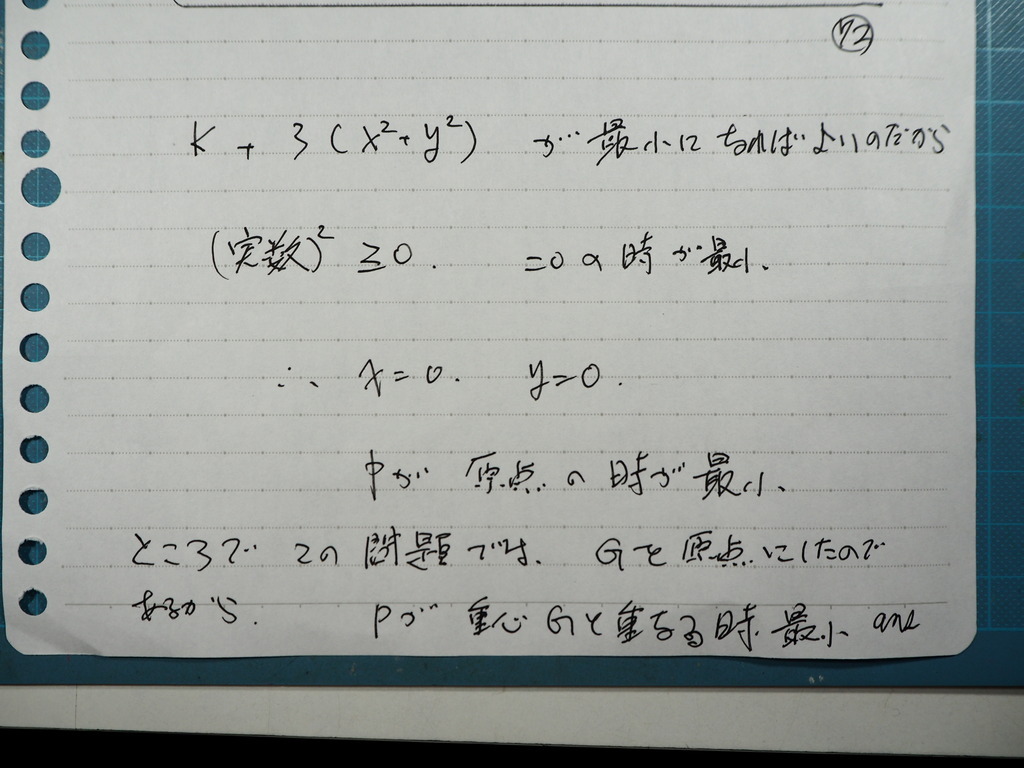 73
K + 3 (x²+y²) が 最小になればよいのだから
(実数)² ≧0. =0の時が最小.
∴ x=0. y=0.
Pが 原点の時が最小.
ところで この問題では、 Gを原点にしたので
あるから. Pが 重心Gと重なる時 最小 ans